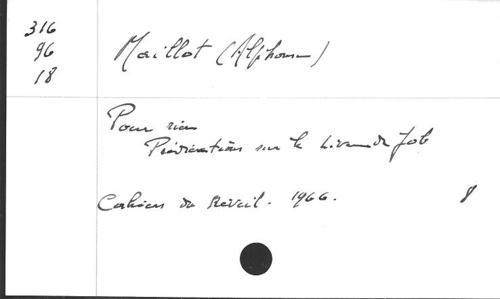 316
96
18
Maillot (Alphonse)
Pour rien
Prédications sur le Livre de Job
Cahiers du Réveil. 1966. 8